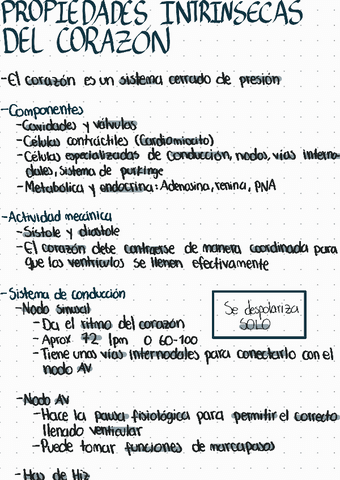 PROPIEDADES INTRINSECAS
DEL CORAZÓN
-El corazón es un sistema cerrado de presión
-Componentes
-Cavidades y válvulas
-Células contráctiles (Cardiomiocito)
-Células especializadas de conducción, nodos, vías interno-
dales, sistema de purkinge
-Metabólica y endocrina: Adenosina, renina, PNA
-Actividad mecánica
-Sístole y diastole
-El corazón debe contraerse de manera coordinada para
que los ventrículos se llenen efectivamente
-Sistema de conducción
-Nodo sinusal
-Da el ritmo del corazón
-Aprox 72 lpm o 60-100
-Tiene unas vías internodales para conectarlo con el
nodo AV
Se despolariza
SOLO
-Nodo AV
-Hace la pausa fisiológica para permitir el correcto
llenado ventricular
-Puede tomar funciones de marcapasos
-Has de Hiz